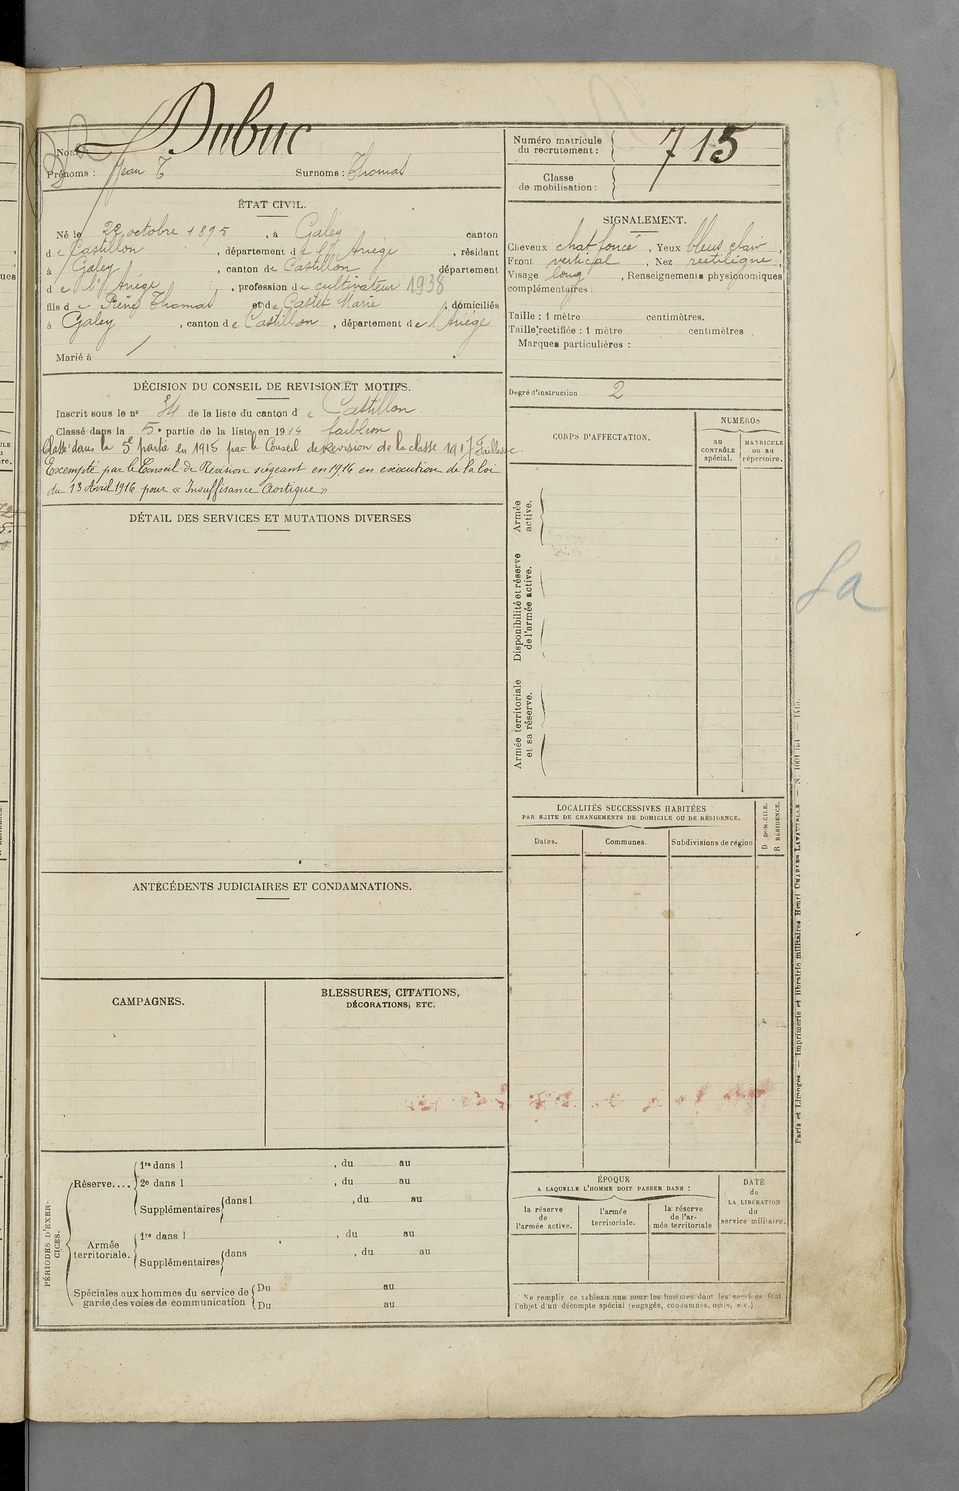 Nom : Dubuc
Prénoms : Jean T Surnoms : Thomas
Numéro matricule du recrutement : 715
Classe de mobilisation :
ÉTAT CIVIL.
Né le 22 octobre 1895, à Galey canton
de Castillon, département de l'Ariège, résidant
à Galey, canton de Castillon département
de l'Ariège, profession de cultivateur 1938
fils de Thomas et de Castet Marie, domiciliés
à Galey, canton de Castillon, département de l'Ariège
Marié à /
SIGNALEMENT.
Cheveux chat foncé, Yeux bleus clair,
Front vertical, Nez rectiligne,
Visage long, Renseignements physionomiques
complémentaires :
Taille : 1 mètre centimètres.
Taille rectifiée : 1 mètre centimètres.
Marques particulières :
Degré d'instruction 2
DÉCISION DU CONSEIL DE REVISION ET MOTIFS.
Inscrit sous le n° 34 de la liste du canton de Castillon
Classé dans la 5e partie de la liste en 1914 faiblesse
Classé dans la 5e partie en 1915 par le Conseil de Revision de la classe 1917 Faiblesse.
Exempté par le Conseil de Revision siégeant en 1916 en exécution de la loi
du 13 Avril 1916 pour « Insuffisance Aortique »
DÉTAIL DES SERVICES ET MUTATIONS DIVERSES
CORPS D'AFFECTATION.
NUMÉROS
au CONTRÔLE spécial.
MATRICULE ou au répertoire.
Armée active.
Disponibilité et réserve de l'armée active.
Armée territoriale et sa réserve.
La
LOCALITÉS SUCCESSIVES HABITÉES
PAR SUITE DE CHANGEMENTS DE DOMICILE OU DE RÉSIDENCE.
Dates. Communes. Subdivisions de région
D DOMICILE.
R RÉSIDENCE.
ANTÉCÉDENTS JUDICIAIRES ET CONDAMNATIONS.
CAMPAGNES.
BLESSURES, CITATIONS,
DÉCORATIONS, ETC.
PÉRIODES D'EXERCICES.
Réserve....
1re dans l , du au
2e dans l , du au
Supplémentaires dans l , du au
Armée territoriale.
1re dans l , du au
Supplémentaires dans , du au
Spéciales aux hommes du service de
garde des voies de communication
Du au
Du au
ÉPOQUE
A LAQUELLE L'HOMME DOIT PASSER DANS :
la réserve de l'armée active.
l'armée territoriale.
la réserve de l'armée territoriale
DATE de LA LIBÉRATION du service militaire.
Ne remplir ce tableau que pour les hommes dont les services font
l'objet d'un décompte spécial (engagés, condamnés, omis, etc.)
Paris et Limoges. — Imprimerie et librairie militaires Henri CHARLES-LAVAUZELLE —